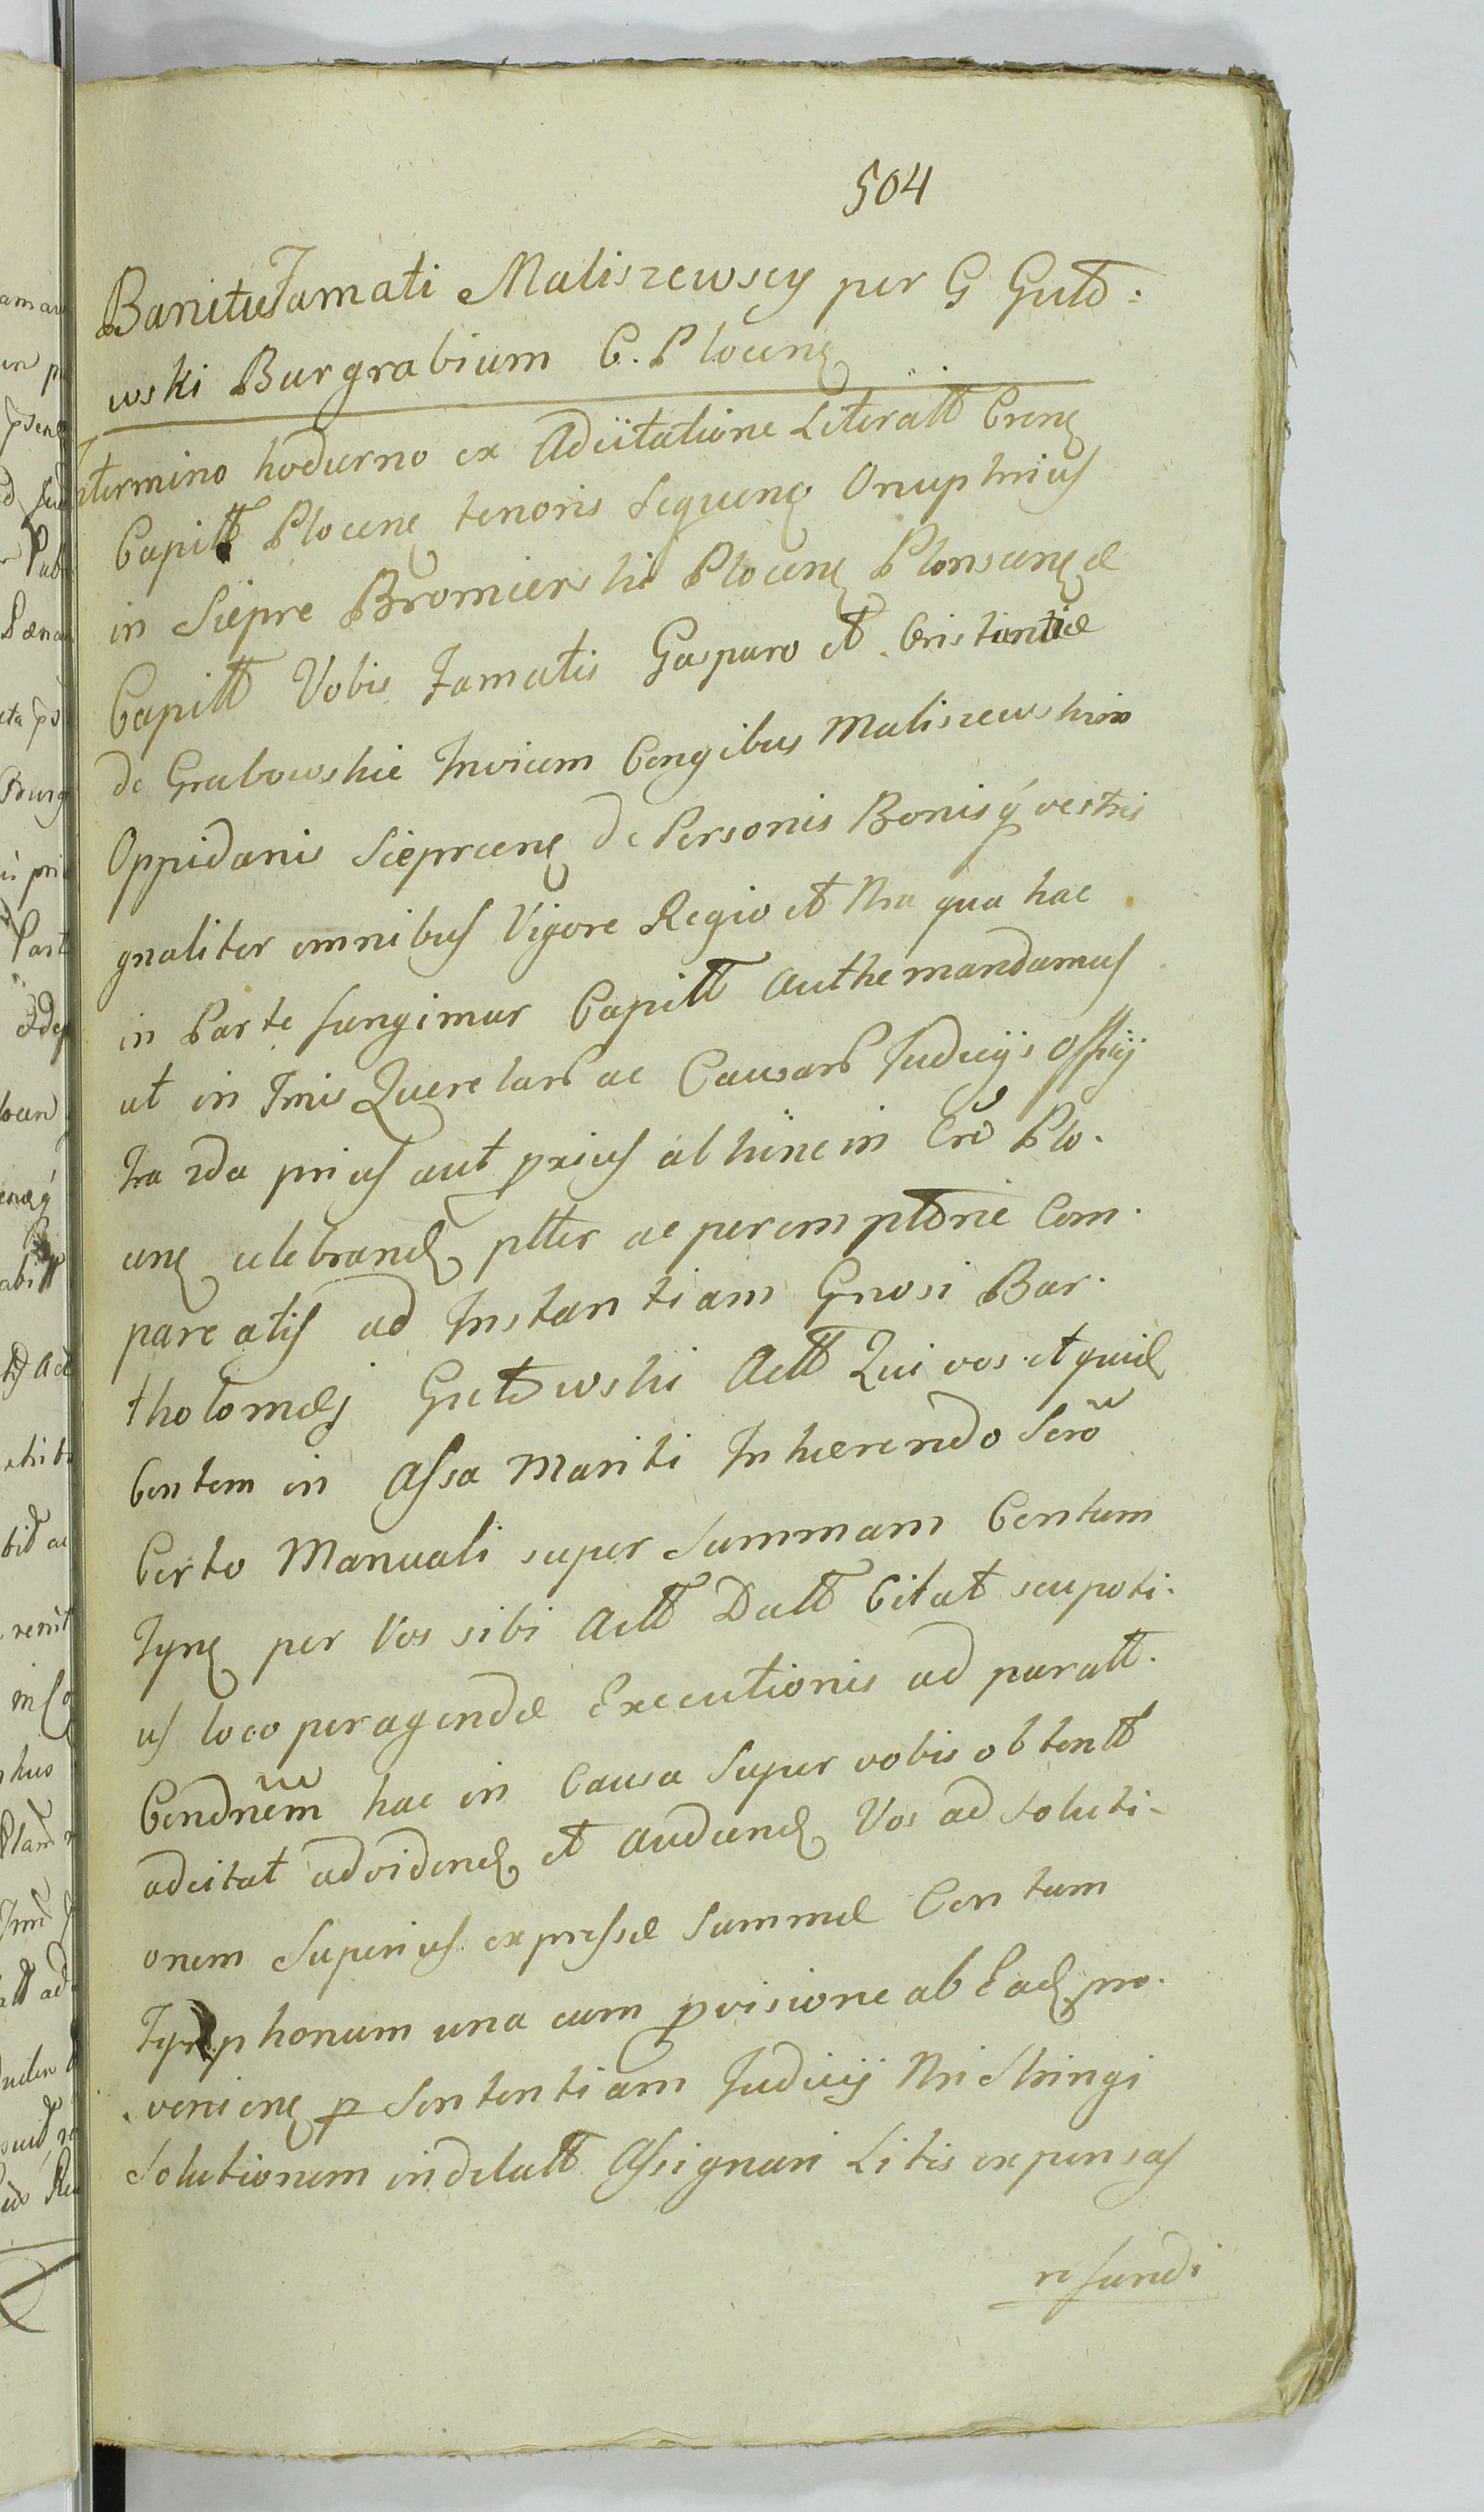 504
Banitu Famati Maliszewscy per G Guto:
wski Burgrabium C. Plocenę
termino hodierno ex Adcitatione Literatt Crenę
Capitt Plocenę tenoris Sequenę Onuphrius
in Siepre Bromierski Plocenę Plonscenę æ
Capitt Vobis Famatis Gasparo et Cristinæ
de Grabowskie Invicem Congibus Maliszewskim
Oppidanis Sieprcenę de Personis Bonisq́ vestris
gnaliter omnibus Vigore Regio et Nra qua hac
in Parte fungimur Capitt Authe mandamus
ut in Tmis Querelarb ac Causarb Judicijs Offcij
Nra 2da prius aut pxius ab hinc in Cro Plo.
cenę celebrandę ptter ac peremptorie Com.
pareatis ad Instantiam Gnosi Bar.
tholomæj Gutowski Actt Qui vos et quidę
Contem in Assa Mariti Inhærendo Scro
Certo Manuali super Summam Centum
Tynę per Vos sibi Actt Datt Citat seu poti.
us loco peragendæ Executionis ad paratt.
Condnem hac in Causa Super vobis obtentt
adcitat ad videndę et audiendę Vos ad Soluti-
onem Superius expressæ Summæ Centum
Tymphonum una cum pvisione ab Eadę pro.
venienę p Sententiam Judicij Nri Stringi
Solutionem indilatt Assignari Litis expensas
refundi